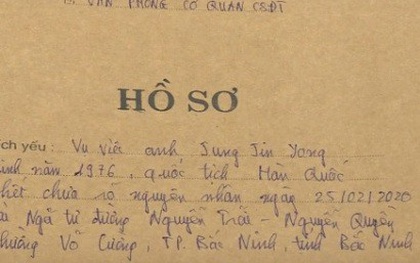 VĂN PHÒNG CƠ QUAN CSĐT
HỒ SƠ
ích yếu: Vụ việc anh Jung Jin Yong
inh năm 1976, quốc tịch Hàn Quốc
hết chưa rõ nguyên nhân ngày 25/02/2020
ại Ngã tư đường Nguyễn Trãi - Nguyễn Quyền
hường Võ Cường, TP. Bắc Ninh, tỉnh Bắc Ninh